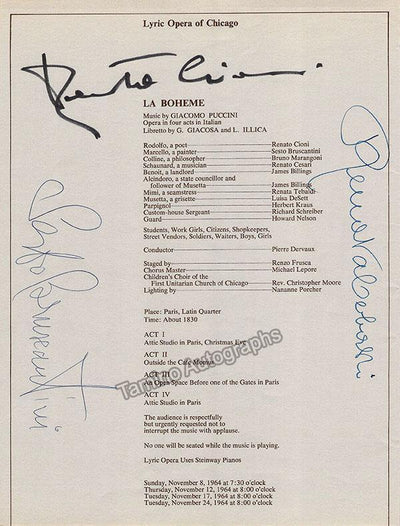 Lyric Opera of Chicago
Renato Cioni
LA BOHEME
Music by GIACOMO PUCCINI
Opera in four acts in Italian
Libretto by G. GIACOSA and L. ILLICA
Rodolfo, a poet Renato Cioni
Marcello, a painter Sesto Bruscantini
Colline, a philosopher Bruno Marangoni
Schaunard, a musician Renato Cesari
Benoit, a landlord James Billings
Alcindoro, a state councillor and
follower of Musetta James Billings
Mimi, a seamstress Renata Tebaldi
Musetta, a grisette Luisa DeSett
Parpignol Herbert Kraus
Custom-house Sergeant Richard Schreiber
Guard Howard Nelson
Renata Tebaldi
Sesto Bruscantini
Students, Work Girls, Citizens, Shopkeepers,
Street Vendors, Soldiers, Waiters, Boys, Girls
Conductor Pierre Dervaux
Staged by Renzo Frusca
Chorus Master Michael Lepore
Children's Choir of the
First Unitarian Church of Chicago Rev. Christopher Moore
Lighting by Nananne Porcher
Place: Paris, Latin Quarter
Time: About 1830
ACT I
Attic Studio in Paris, Christmas Eve
ACT II
Outside the Cafe Momus
ACT III
An Open Space Before one of the Gates in Paris
ACT IV
Attic Studio in Paris
Tamino Autographs
The audience is respectfully
but urgently requested not to
interrupt the music with applause.
No one will be seated while the music is playing.
Lyric Opera Uses Steinway Pianos
Sunday, November 8, 1964 at 7:30 o'clock
Thursday, November 12, 1964 at 8:00 o'clock
Tuesday, November 17, 1964 at 8:00 o'clock
Tuesday, November 24, 1964 at 8:00 o'clock